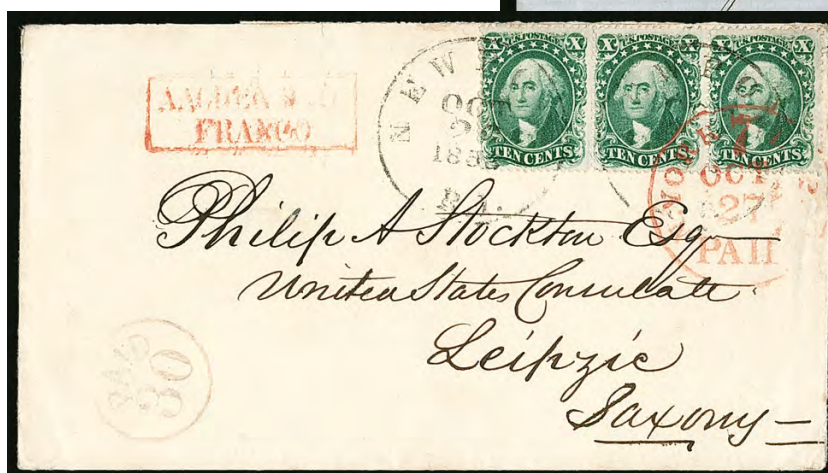 U.S. POSTAGE
X X
TEN CENTS
U.S. POSTAGE
X X
TEN CENTS
U.S. POSTAGE
X X
TEN CENTS
FRANCO
OCT
27
Philip A Stockton Esq
United States Consulate
Leipzic
Saxony
30